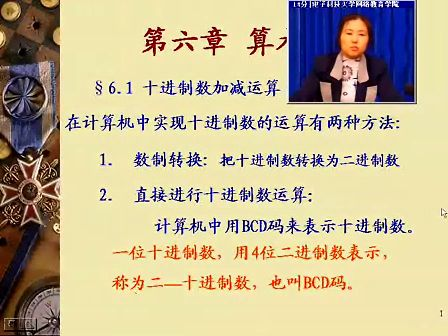 电子科技大学网络教育学院
第六章 算
§6.1 十进制数加减运算
在计算机中实现十进制数的运算有两种方法：
1. 数制转换：把十进制数转换为二进制数
2. 直接进行十进制数运算：
计算机中用BCD码来表示十进制数。
一位十进制数，用4位二进制数表示，
称为二—十进制数，也叫BCD码。